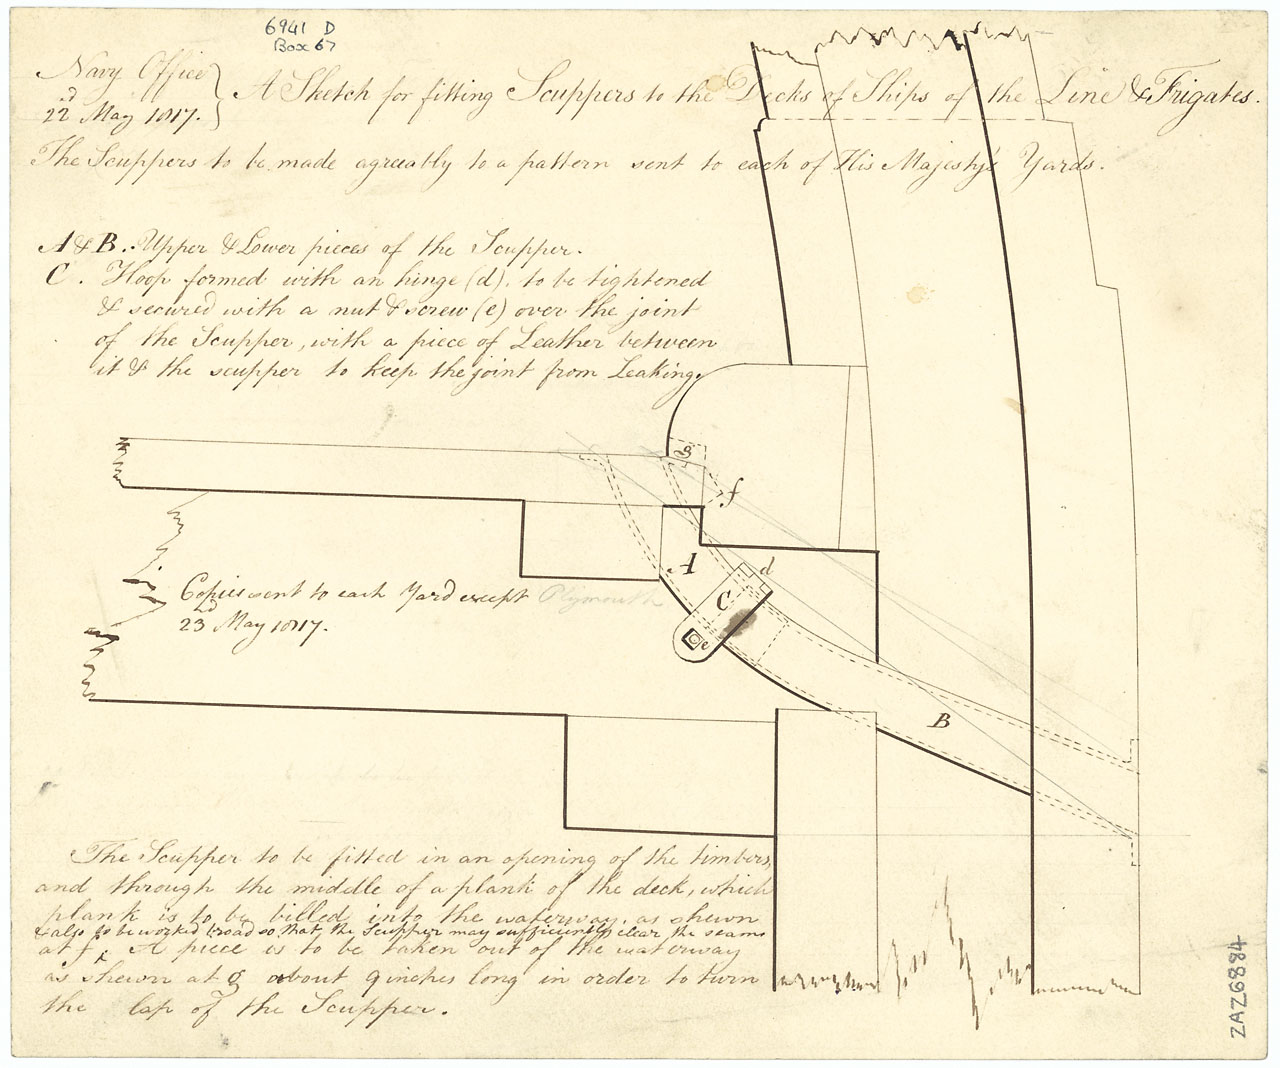 6941 D
Box 67
Navy Office
22nd May 1817. } A Sketch for fitting Scuppers to the Decks of Ships of the Line & Frigates.
The Scuppers to be made agreeably to a pattern sent to each of His Majesty's Yards.
A & B. Upper & Lower pieces of the Scupper.
C. Hoop formed with an hinge (d), to be tightened
& secured with a nut & screw (e) over the joint
of the Scupper, with a piece of Leather between
it & the scupper to keep the joint from Leaking.
g
f
A
d
C
e
B
Copies sent to each Yard except Plymouth
23rd May 1817.
The Scupper to be fitted in an opening of the timbers,
and through the middle of a plank of the deck, which
plank is to be billed into the waterway, as shewn
& also to be worked broad so that the Scupper may sufficiently clear the seams
at f. A piece is to be taken out of the waterway
as shewn at g about 9 inches long in order to turn
the lap of the Scupper.
ZAZ6884